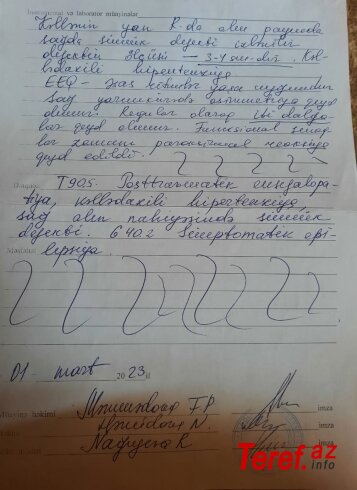 Instrumental və laborator müayinələr
Kəllənin yan R-da alın payında
sağda sümük defekti izlənilir
defektin ölçüsü — 3-4 sm-dir. Kəl-
lədaxili hipertenziya
EEQ —
sağ yarımkürədə asimmetriya qeyd
olunur. Regulyar olaraq iti dalğa-
lar qeyd olunur. Funksional sınaq-
lar zamanı paroksizmal reaksiya
qeyd edildi.
Diaqnoz T90.5. Posttravmatik ensefalopa-
tiya, kəllədaxili hipertenziya,
sağ alın nahiyəsində sümük
defekti. G40.2 Simptomatik epi-
lepsiya.
Məsləhət
01 mart 2023 il
Müayinə həkimi F.P. imza
N. imza
Nağıyeva R imza
Teref.az
info